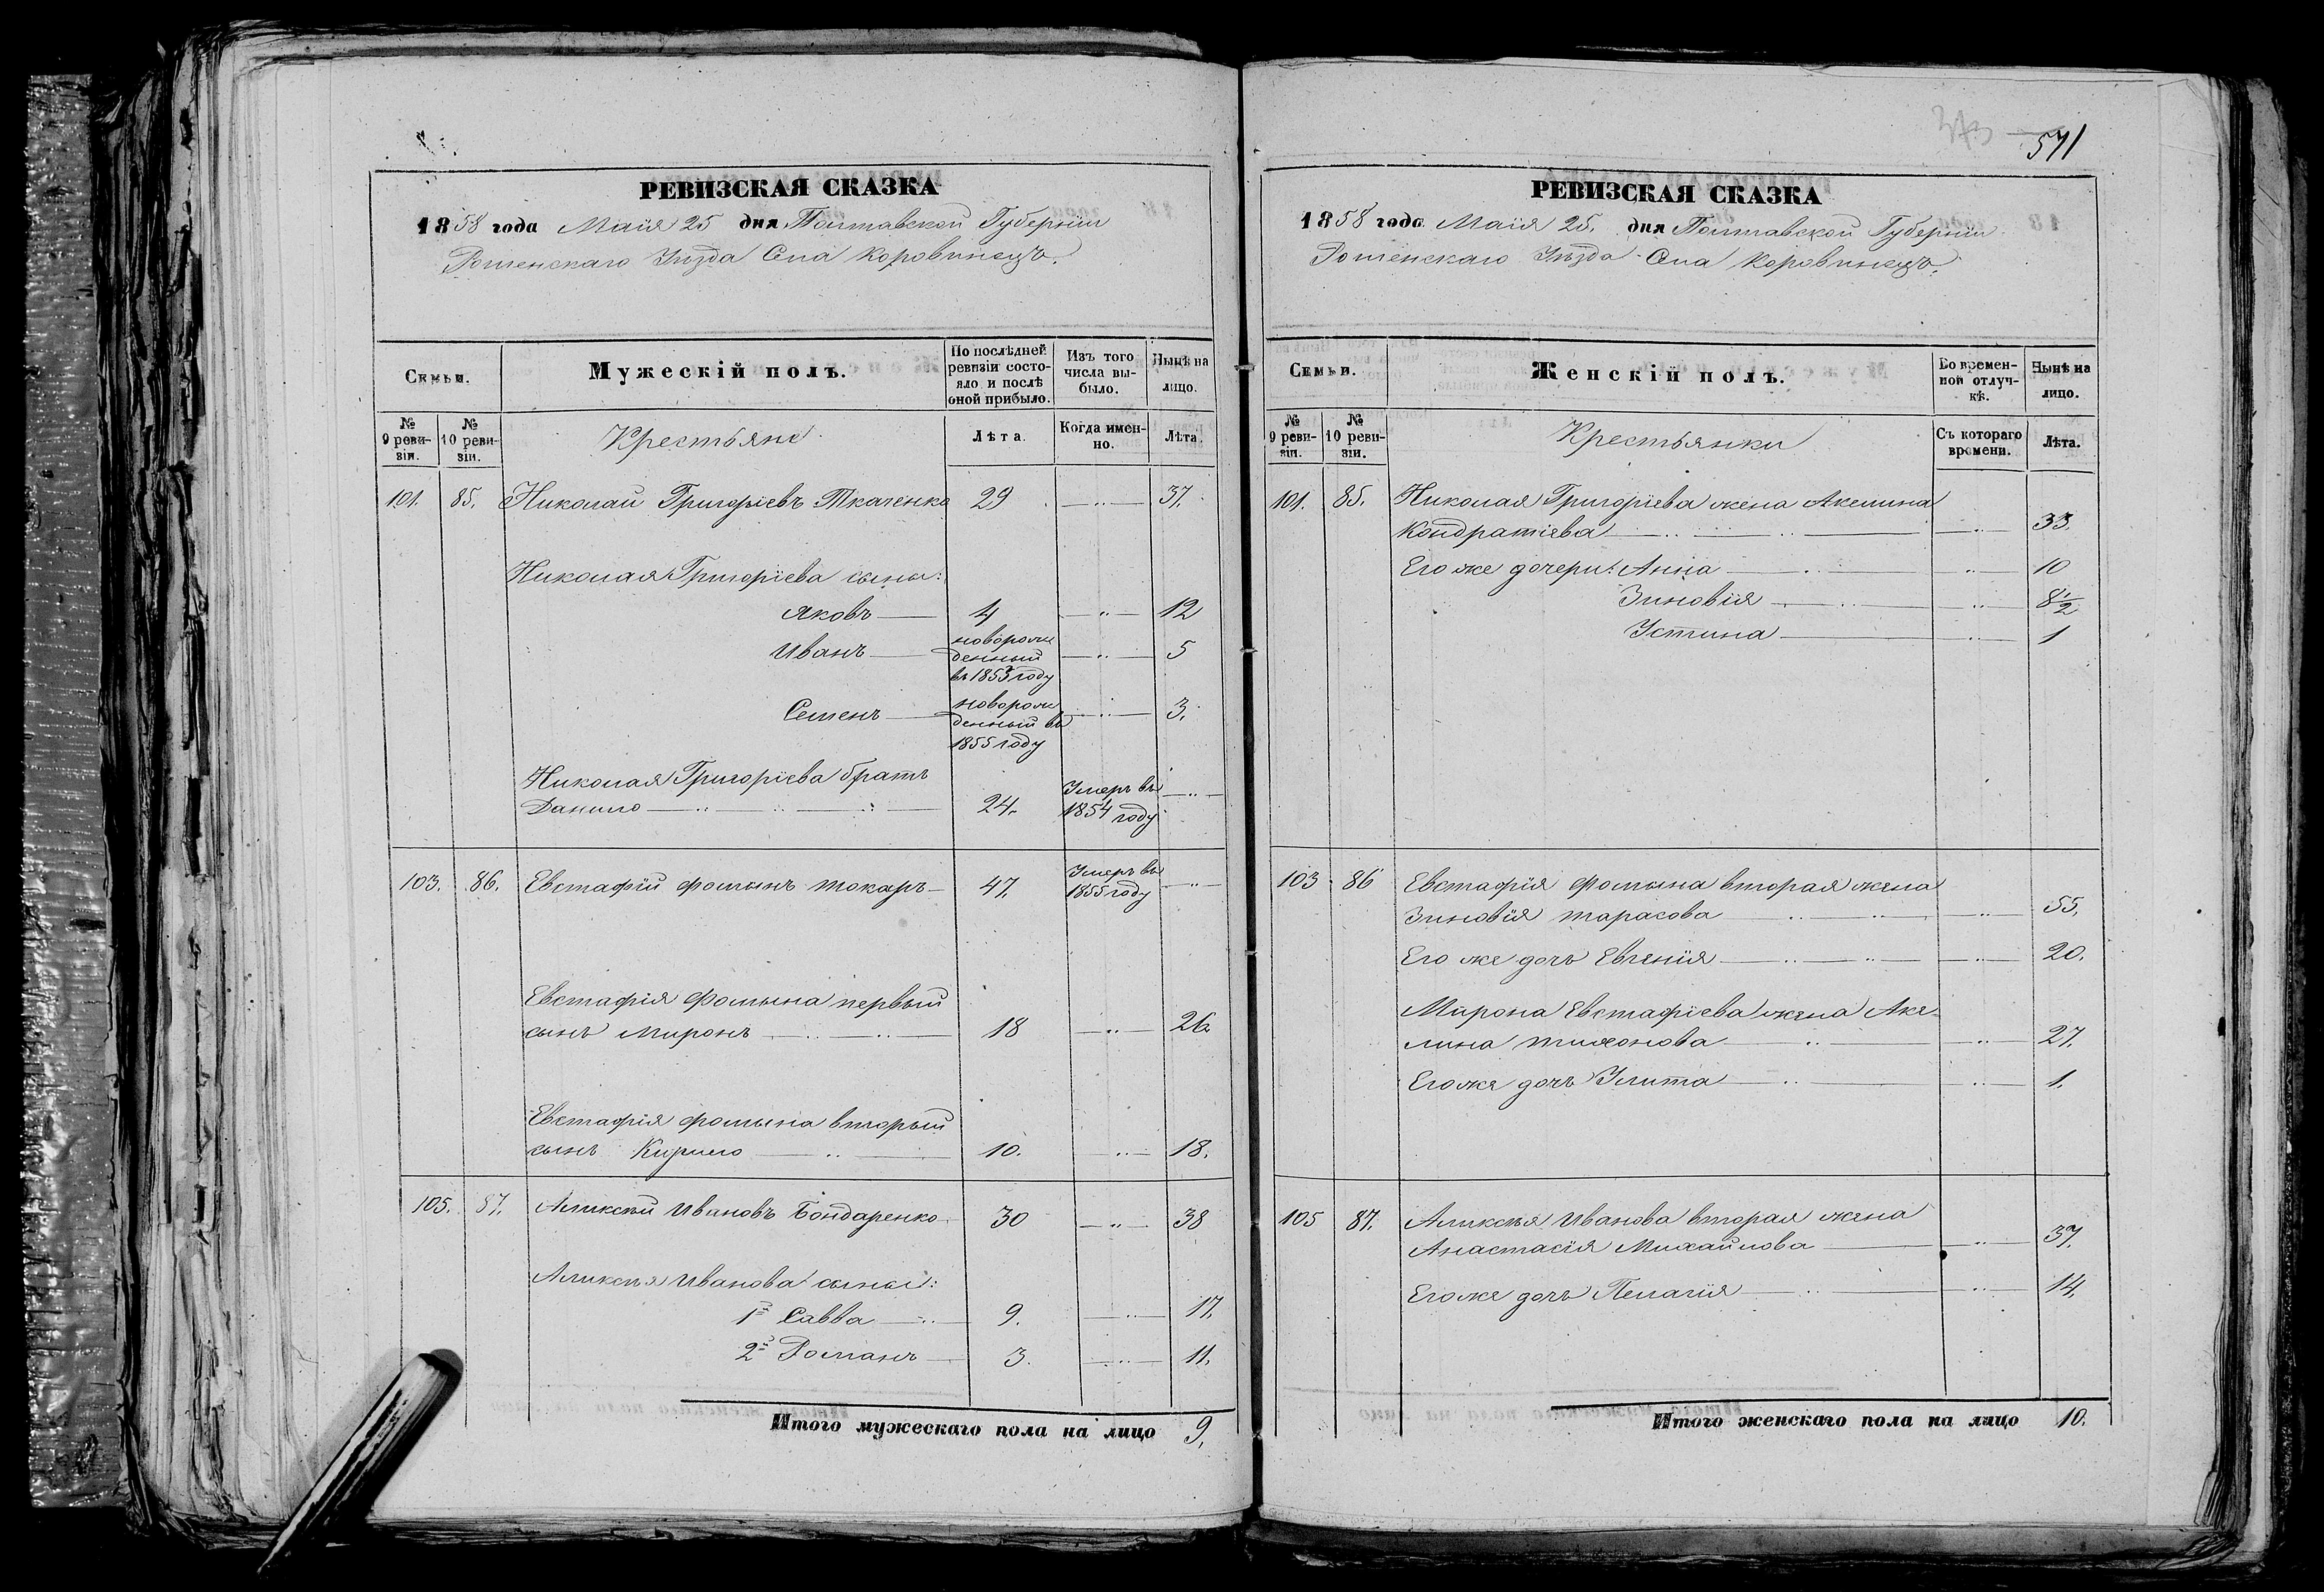 РЕВИЗСКАЯ СКАЗКА
1858 года Маія 25 дня Полтавской Губерніи
Роменскаго Уѣзда Села Коровинецъ.
Семьи.
Мужескій полъ.
По послѣдней ревизіи состояло и послѣ оной прибыло.
Изъ того числа выбыло.
Нынѣ на лицо.
№ 9 ревизіи.
№ 10 ревизіи.
Крестьяне
Лѣта.
Когда именно.
Лѣта.
101. 85. Николай Григорьевъ Ткаченко 29 — " — 37.
Николая Григоріева сыны:
Яковъ — 4 — " — 12
Иванъ — новорожденный въ 1853 году — " — 5
Семенъ — новорожденный въ 1855 году — " — 3.
Николая Григоріева братъ
Данило — " — 24. Умеръ въ 1854 году — " —
103. 86. Евстафій Фоминъ Токарь — 47. Умеръ въ 1855 году — " —
Евстафія Фомина первый
сынъ Миронъ — " — 18 — " — 26
Евстафія Фомина вторый
сынъ Кирило — " — 10. " — 18.
105. 87. Аликсѣй Ивановъ Бондаренко 30 — " — 38
Аликсѣя Иванова сыны:
1й Савва — " — 9. — " — 17.
2й Романъ — 3. — " — 11.
Итого мужескаго пола на лицо 9.
373 571
РЕВИЗСКАЯ СКАЗКА
1858 года Маія 25. дня Полтавской Губерніи
Роменскаго Уѣзда Села Коровинецъ.
Семьи.
Женскій полъ.
Во временной отлучкѣ.
Нынѣ на лицо.
№ 9 ревизіи.
№ 10 ревизіи.
Крестьянки
Съ котораго времени.
Лѣта.
101. 85. Николая Григоріева жена Акелина
Кондратіева — " — " — 33.
Его же дочери: Анна — " — 10
Зиновія — " — 8 1/2
Устина — " — 1
103 86 Евстафія Фомина вторая жена
Зиновія Тарасова — " — 55.
Его же дочь Евгенія — " — 20.
Мирона Евстафіева жена Аке-
лина Тихонова — " — 27.
Его же дочь Улита — " — 1.
105 87. Аликсѣя Иванова вторая жена
Анастасія Михайлова — " — 37.
Его же дочь Пелагія — " — 14.
Итого женскаго пола на лицо 10.